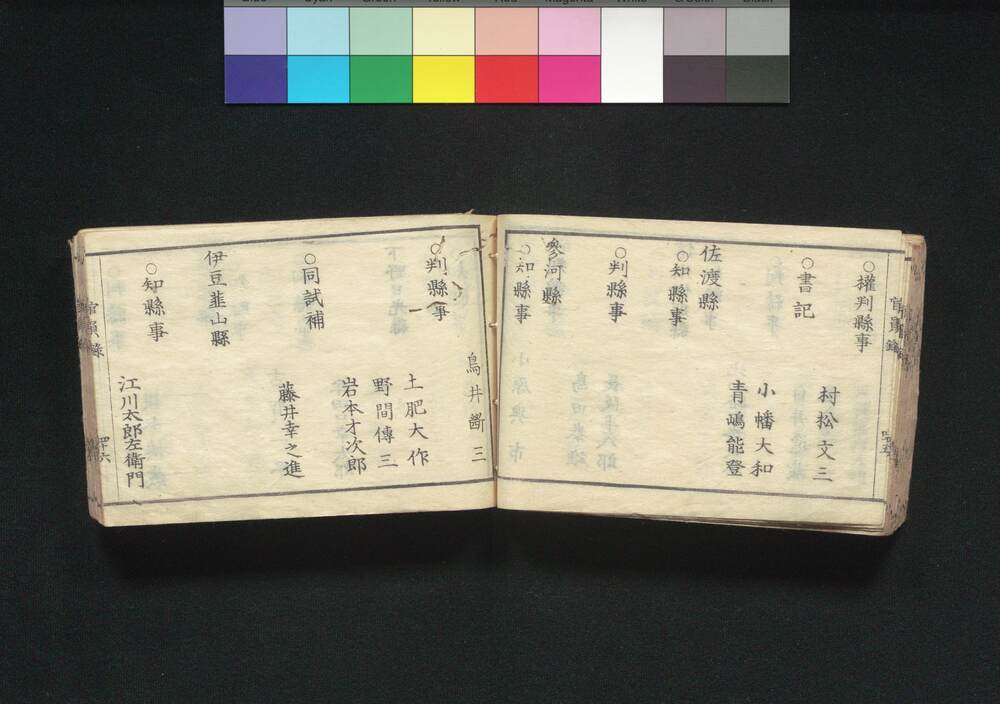 ○權判縣事
村松文三
○書記
小幡大和
青嶋能登
佐渡縣
○知縣事
○判縣事
參河縣
○知縣事
鳥井斷三
○判縣事
土肥大作
野間傳三
岩本才次郎
○同試補
藤井幸之進
伊豆韮山縣
○知縣事
江川太郎左衛門
官員錄
官員錄
四十六